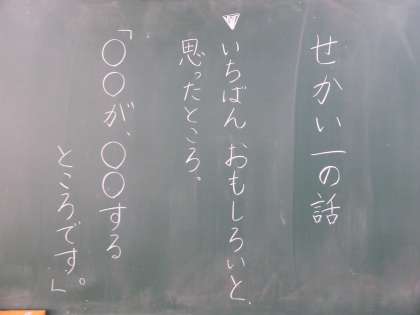 せかい一の話
▼いちばんおもしろいと
思ったところ。
「○○が、○○する
ところです。」